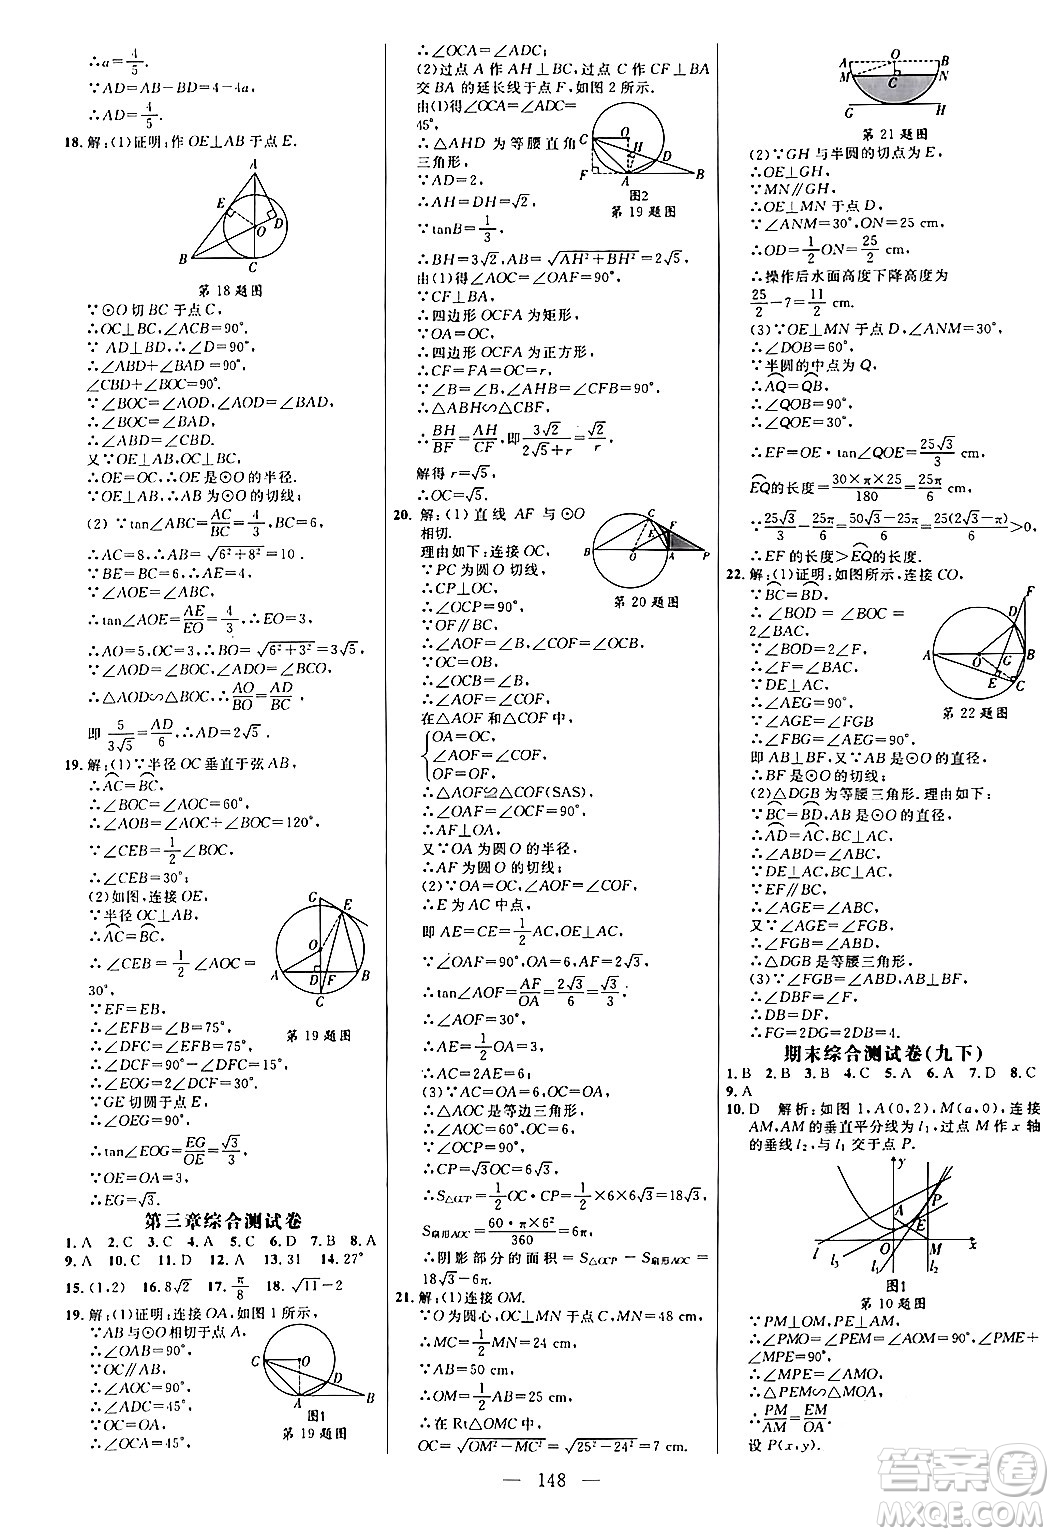 ∴a=4/5.
∵AD=AB-BD=4-4a,
∴AD=4/5.
18.解:(1)证明:作OE⊥AB于点E.
A
E
D
O
B
C
第18题图
∵⊙O切BC于点C,
∴OC⊥BC,∠ACB=90°.
∵ AD⊥BD,∴∠D=90°,
∴∠ABD+∠BAD=90°,
∠CBD+∠BOC=90°.
∵∠BOC=∠AOD,∠AOD=∠BAD,
∴∠BOC=∠BAD,
∴∠ABD=∠CBD.
又∵OE⊥AB,OC⊥BC,
∴OE=OC,∴OE是⊙O的半径.
∵OE⊥AB,∴AB是⊙O的切线;
(2) ∵tan∠ABC=AC/BC=4/3,BC=6,
∴AC=8,∴AB=√(6²+8²)=10.
∵BE=BC=6,∴AE=4.
∵∠AOE=∠ABC,
∴tan∠AOE=AE/EO=4/3,∴EO=3,
∴AO=5,OC=3,∴BO=√(6²+3²)=3√5.
∵∠AOD=∠BOC,∠ADO=∠BCO,
∴△AOD∽△BOC,∴AO/BO=AD/BC,
即 5/(3√5)=AD/6,∴AD=2√5.
19.解:(1)∵半径OC垂直于弦AB,
∴AC=BC,
∴∠BOC=∠AOC=60°,
∴∠AOB=∠AOC+∠BOC=120°.
∵∠CEB=1/2∠BOC,
∴∠CEB=30°;
(2)如图,连接OE,
∵半径OC⊥AB,
∴AC=BC,
∴∠CEB=1/2∠AOC=
30°.
∵EF=EB,
∴∠EFB=∠B=75°,
∴∠DFC=∠EFB=75°,
∴∠DCF=90°-∠DFC=15°.
∵OE=OC,
∴∠C=∠OEC=15°,
∴∠EOG=∠C+∠OEC=30°.
G
E
O
A
D F
B
C
第19题图
∵GE切圆于点E,
∴∠OEG=90°,
∴tan∠EOG=EG/OE=√3/3.
∵OE=OA=3,
∴EG=√3.
第三章综合测试卷
1.A 2.C 3.C 4.A 5.C 6.D 7.B 8.A
9.A 10.C 11.D 12.A 13.31 14.27°
15.(1,2) 16.8√2 17.π/8 18.√11-2
19.解:(1)证明:连接OA,如图1所示,
∵AB与⊙O相切于点A,
∴∠OAB=90°.
∵OC∥AB,
∴∠AOC=90°,
∴∠ADC=45°.
∵OC=OA,
∴∠OCA=45°,
C
O
D
A
B
图1
第19题图
∴∠OCA=∠ADC;
(2)过点A作AH⊥BC,过点C作CF⊥BA
交BA的延长线于点F,如图2所示.
由(1)得∠OCA=∠ADC=
45°,
∴△AHD为等腰直角
三角形,
∵AD=2,
∴AH=DH=√2,
∵tanB=1/3,
C
O
H
D
F
A
B
图2
第19题图
∴BH=3√2,AB=√(AH²+BH²)=2√5.
由(1)得∠AOC=∠OAF=90°,
∵CF⊥BA,
∴四边形OCFA为矩形,
∵OA=OC,
∴四边形OCFA为正方形,
∴CF=FA=OC=r,
∵∠B=∠B,∠AHB=∠CFB=90°,
∴△ABH∽△CBF,
∴BH/BF=AH/CF,即3√2/(2√5+r)=√2/r,
解得r=√5,
∴OC=√5.
20.解:(1)直线AF与⊙O
相切.
理由如下:连接OC,
∵PC为圆O切线,
∴CP⊥OC,
∴∠OCP=90°,
∵OF∥BC,
C
E F
B
O
A
P
第20题图
∴∠AOF=∠B,∠COF=∠OCB,
∵OC=OB,
∴∠OCB=∠B,
∴∠AOF=∠COF,
在△AOF和△COF中,
OA=OC,
∠AOF=∠COF,
OF=OF,
∴△AOF≌△COF(SAS)
∴∠OAF=∠OCF=90°,
∴AF⊥OA,
又∵OA为圆O的半径,
∴AF为圆O的切线;
(2)∵△AOF≌△COF,
∴∠AOF=∠COF,
∵OA=OC,
∴E为AC中点,
即AE=CE=1/2AC,OE⊥AC,
∵∠OAF=90°,OA=6,AF=2√3,
∴tan∠AOF=AF/OA=2√3/6=√3/3,
∴∠AOF=30°,
∴AE=1/2OA=3,
∴AC=2AE=6;
(3)∵AC=OA=6,OC=OA=6,
∴△AOC是等边三角形,
∴∠AOC=60°,OC=6,
∵∠OCP=90°,
∴CP=√3OC=6√3,
∴S△OCP=1/2OC·CP=1/2×6×6√3=18√3,
S扇形AOC=60·π×6²/360=6π,
∴阴影部分的面积=S△OCP-S扇形AOC=
18√3-6π.
21.解:(1)连接OM.
∵O为圆心,OC⊥MN于点C,MN=48 cm,
∴MC=1/2MN=24 cm,
∵AB=50 cm,
∴OM=1/2AB=25 cm,
∴在Rt△OMC中,
OC=√(OM²-MC²)=√(25²-24²)=7 cm.
A
O
B
M
C
N
G
H
第21题图
(2)∵GH与半圆的切点为E,
∴OE⊥GH,
∵MN∥GH,
∴OE⊥MN于点D,
∵∠ANM=30°,ON=25 cm,
∴OD=1/2ON=25/2 cm,
∴操作后水面高度下降高度为
25/2-7=11/2 cm.
(3)∵OE⊥MN于点D,∠ANM=30°,
∴∠DOB=60°,
∵半圆的中点为Q,
∴AQ=QB,
∴∠QOB=90°,
∴∠QOE=30°,
∴EF=OE·tan∠QOE=25√3/3 cm,
EQ的长度=30×π×25/180=25π/6 cm,
∵25√3/3-25π/6=(50√3-25π)/6=25(2√3-π)/6>0,
∴EF的长度>EQ的长度.
22.解:(1)证明:如图所示,连接CO,
∵BC=BD,
∴∠BOD=∠BOC=
2∠BAC,
∵∠BOD=2∠F,
∴∠F=∠BAC,
∵DE⊥AC,
∴∠AEG=90°,
∵∠AGE=∠FGB
∴∠FBG=∠AEG=90°,
F
D
A
O
G
B
E
C
第22题图
即AB⊥BF,又∵AB是⊙O的直径,
∴BF是⊙O的切线;
(2)△DGB为等腰三角形.理由如下:
∵BC=BD,AB是⊙O的直径,
∴AD=AC,BC⊥AC,
∴∠ABD=∠ABC,
∵DE⊥AC,BC⊥AC,
∴EF∥BC,
∴∠AGE=∠ABC,
又∵∠AGE=∠FGB,
∴∠FGB=∠ABD,
∴△DGB是等腰三角形.
(3)∵∠FGB=∠ABD,AB⊥BF,
∴∠DBF=∠F,
∴DB=DF,
∴FG=2DG=2DB=4.
期末综合测试卷(九下)
1.B 2.B 3.B 4.C 5.A 6.A 7.D 8.C
9.A
10.D 解析:如图1,A(0,2),M(a,0),连接
AM,AM的垂直平分线为l₁,过点M作x轴
的垂线l₂,与l₁交于点P.
y
P
A
E
l
O
M
x
l₁
l₂
图1
第10题图
∵PM⊥OM,AM⊥PE,
∴∠PMO=∠PEM=∠AOM=90°,∠PME+
∠MPE=90°,
∴∠MPE=∠AMO,
∴△PEM∽△MOA,
∴PM/AM=EM/OA.
设P(x,y).
— 148 —
答案圈
MXQE.COM